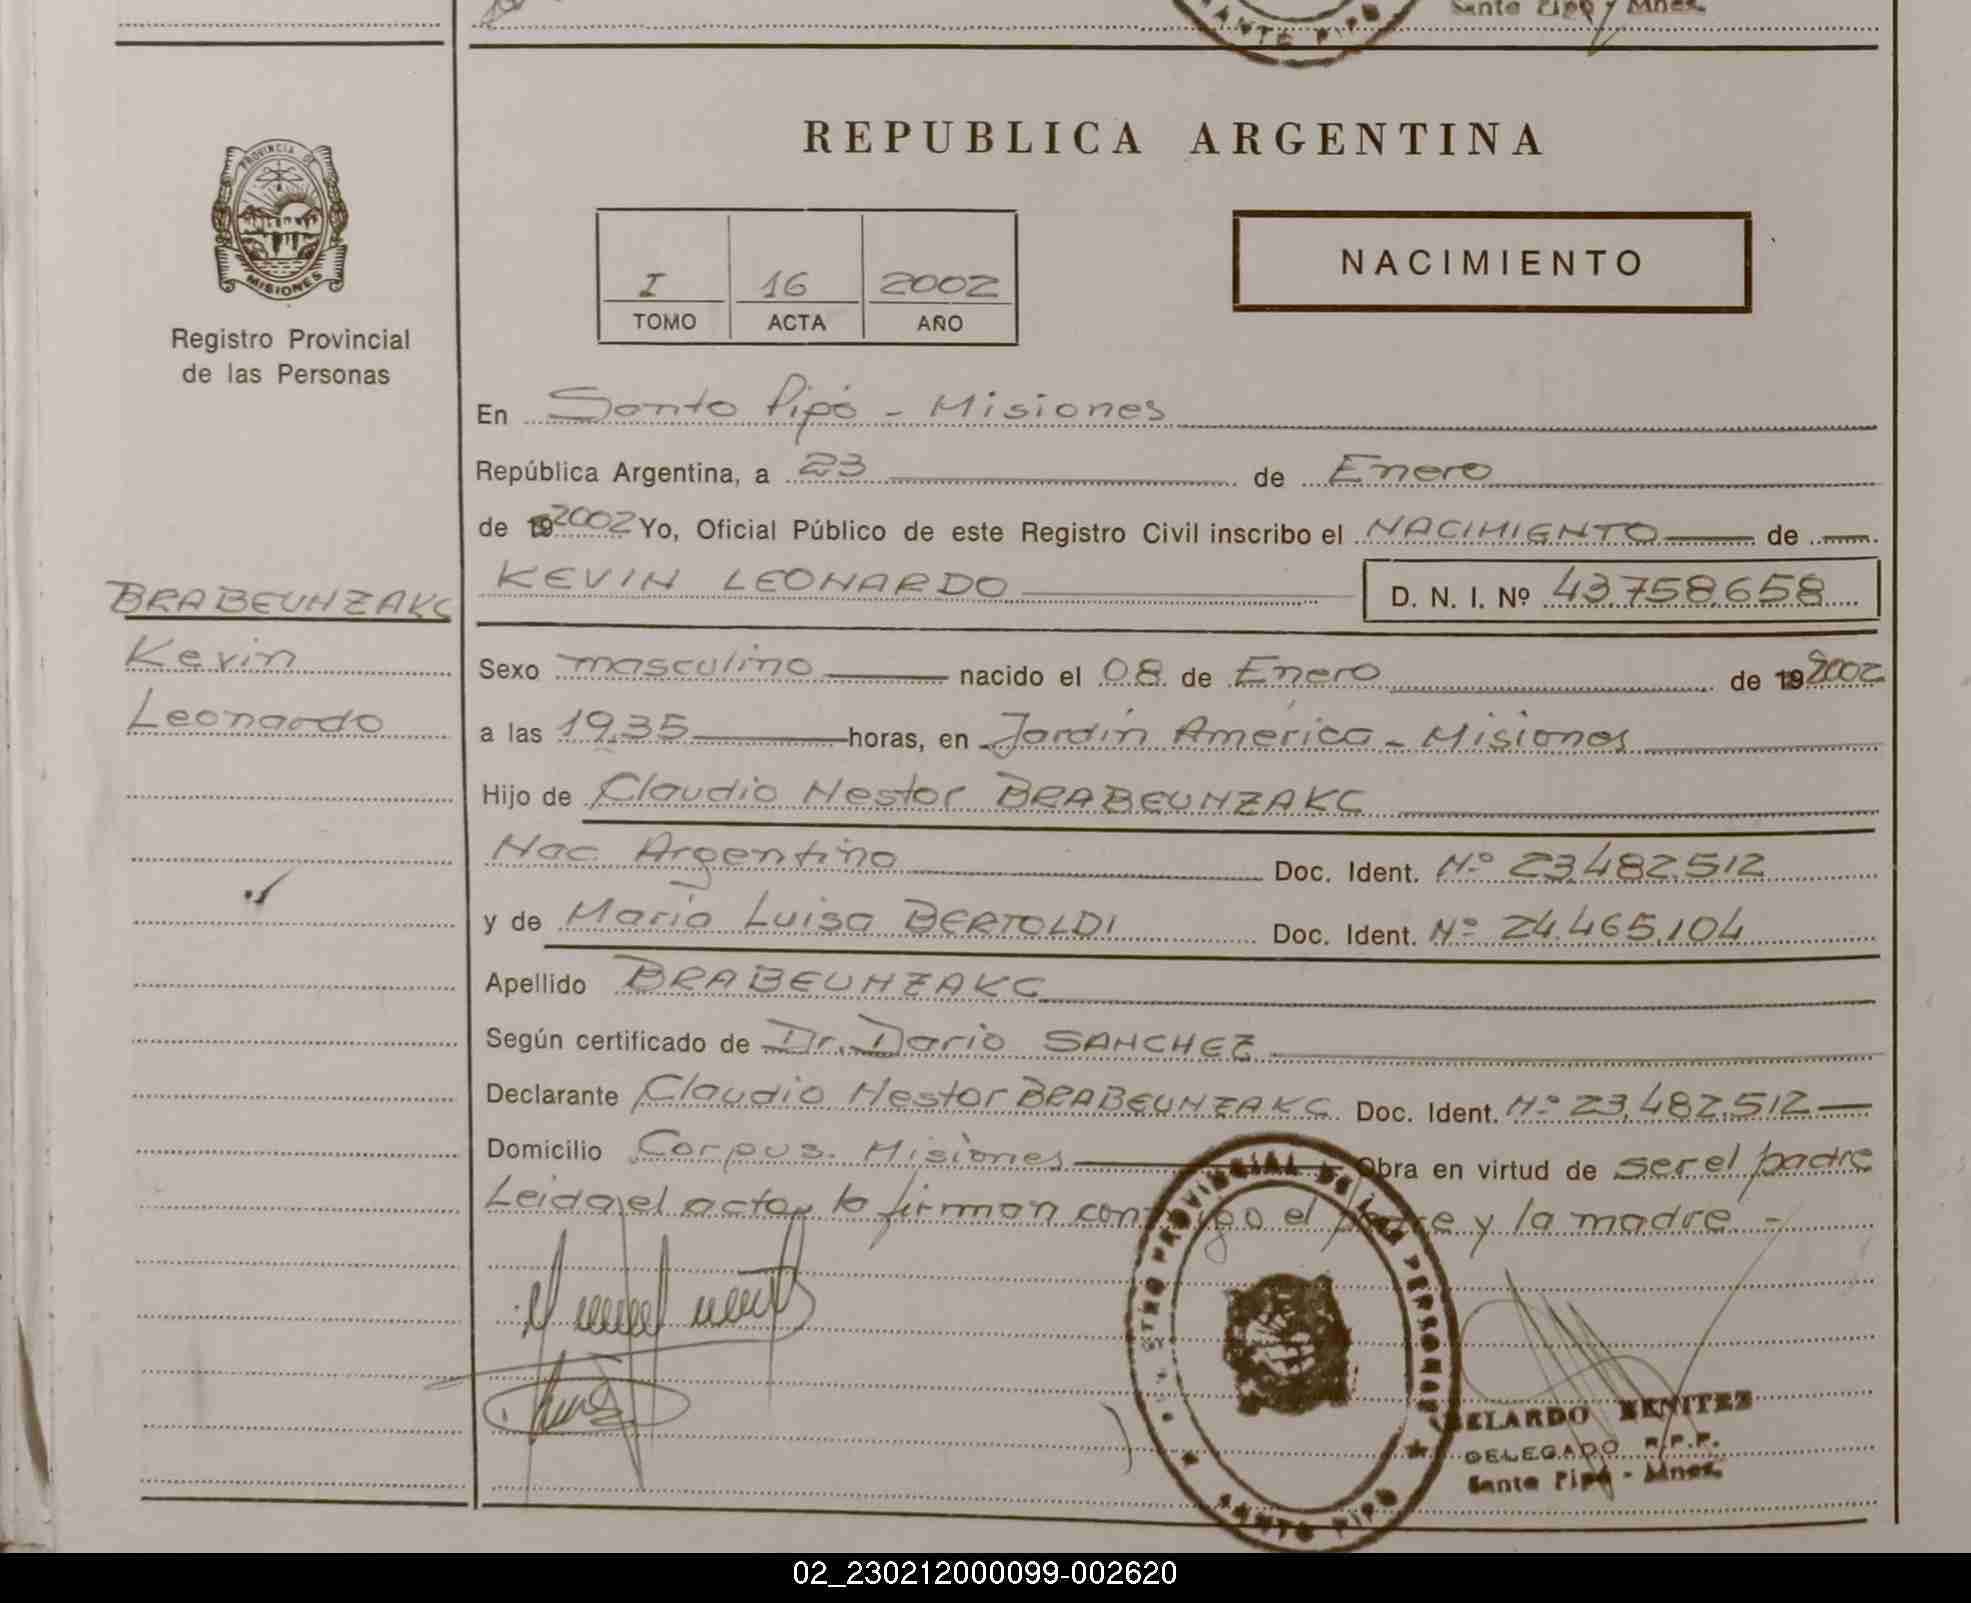 Santo Pipó Mnes.
SANTO PIPO
PROVINCIA DE
MISIONES
Registro Provincial
de las Personas
REPUBLICA ARGENTINA
NACIMIENTO
I 16 2002
TOMO ACTA AÑO
En Santo Pipó - Misiones
República Argentina, a 23 de Enero
de 19 2002 Yo, Oficial Público de este Registro Civil inscribo el NACIMIENTO de
KEVIN LEONARDO D. N. I. Nº 43.758.658
BRABEUNZAKC
Kevin
Leonardo
Sexo masculino nacido el 08 de Enero de 19 2002
a las 19,35 horas, en Jardín América - Misiones
Hijo de Claudio Nestor BRABEUNZAKC
Nac. Argentino Doc. Ident. Nº 23.482.512
y de María Luisa BERTOLDI Doc. Ident. Nº 24.465.104
Apellido BRABEUNZAKC
Según certificado de Dr. Dario SANCHEZ
Declarante Claudio Nestor BRABEUNZAKC Doc. Ident. Nº 23.482.512
Domicilio Corpus. Misiones Obra en virtud de ser el padre
Leida el acta, la firman conmigo el padre y la madre. -
REGISTRO PROVINCIAL DE LAS PERSONAS
SANTO PIPO
ELARDO BENITEZ
DELEGADO R.P.P.
Santo Pipó - Mnes.
02_230212000099-002620